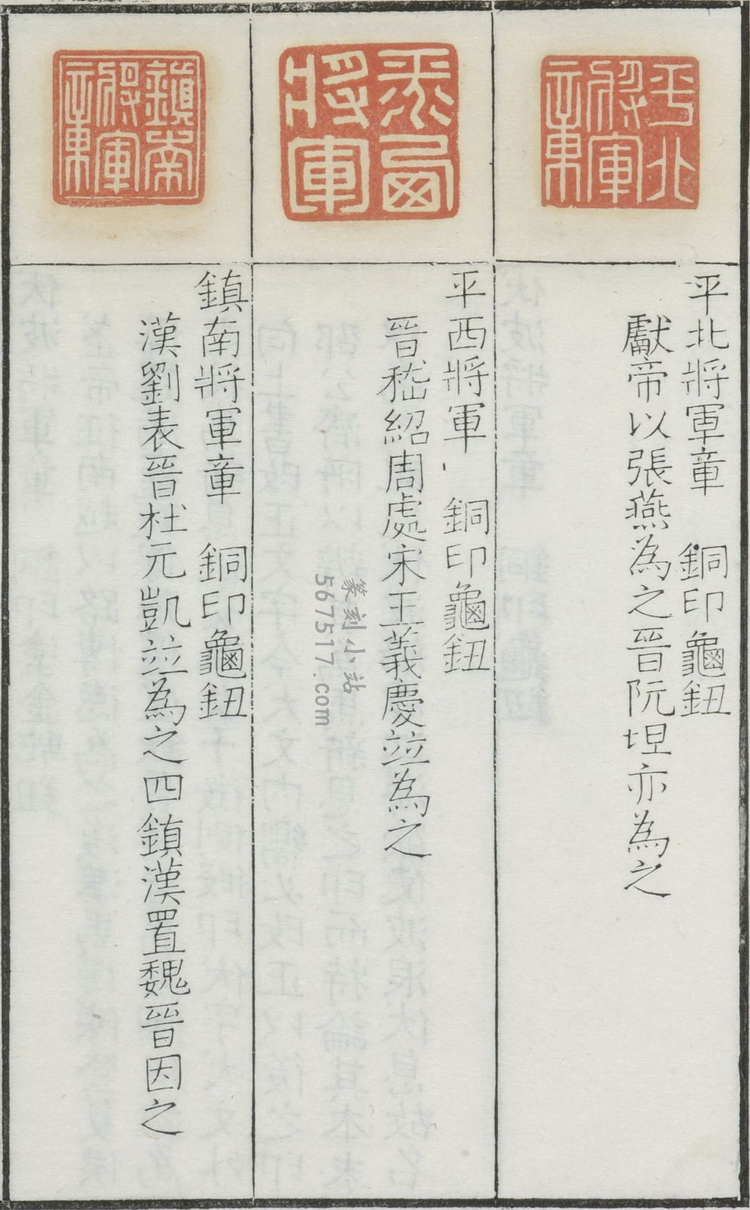 平北將軍章
平北將軍章　銅印龜鈕
獻帝以張燕為之晉阮坦亦為之
平西將軍
平西將軍　銅印龜鈕
晉嵇紹周處宋王義慶竝為之
鎮南將軍章
鎮南將軍章　銅印龜鈕
漢劉表晉杜元凱竝為之四鎮漢置魏晉因之
篆刻小站
567517.com